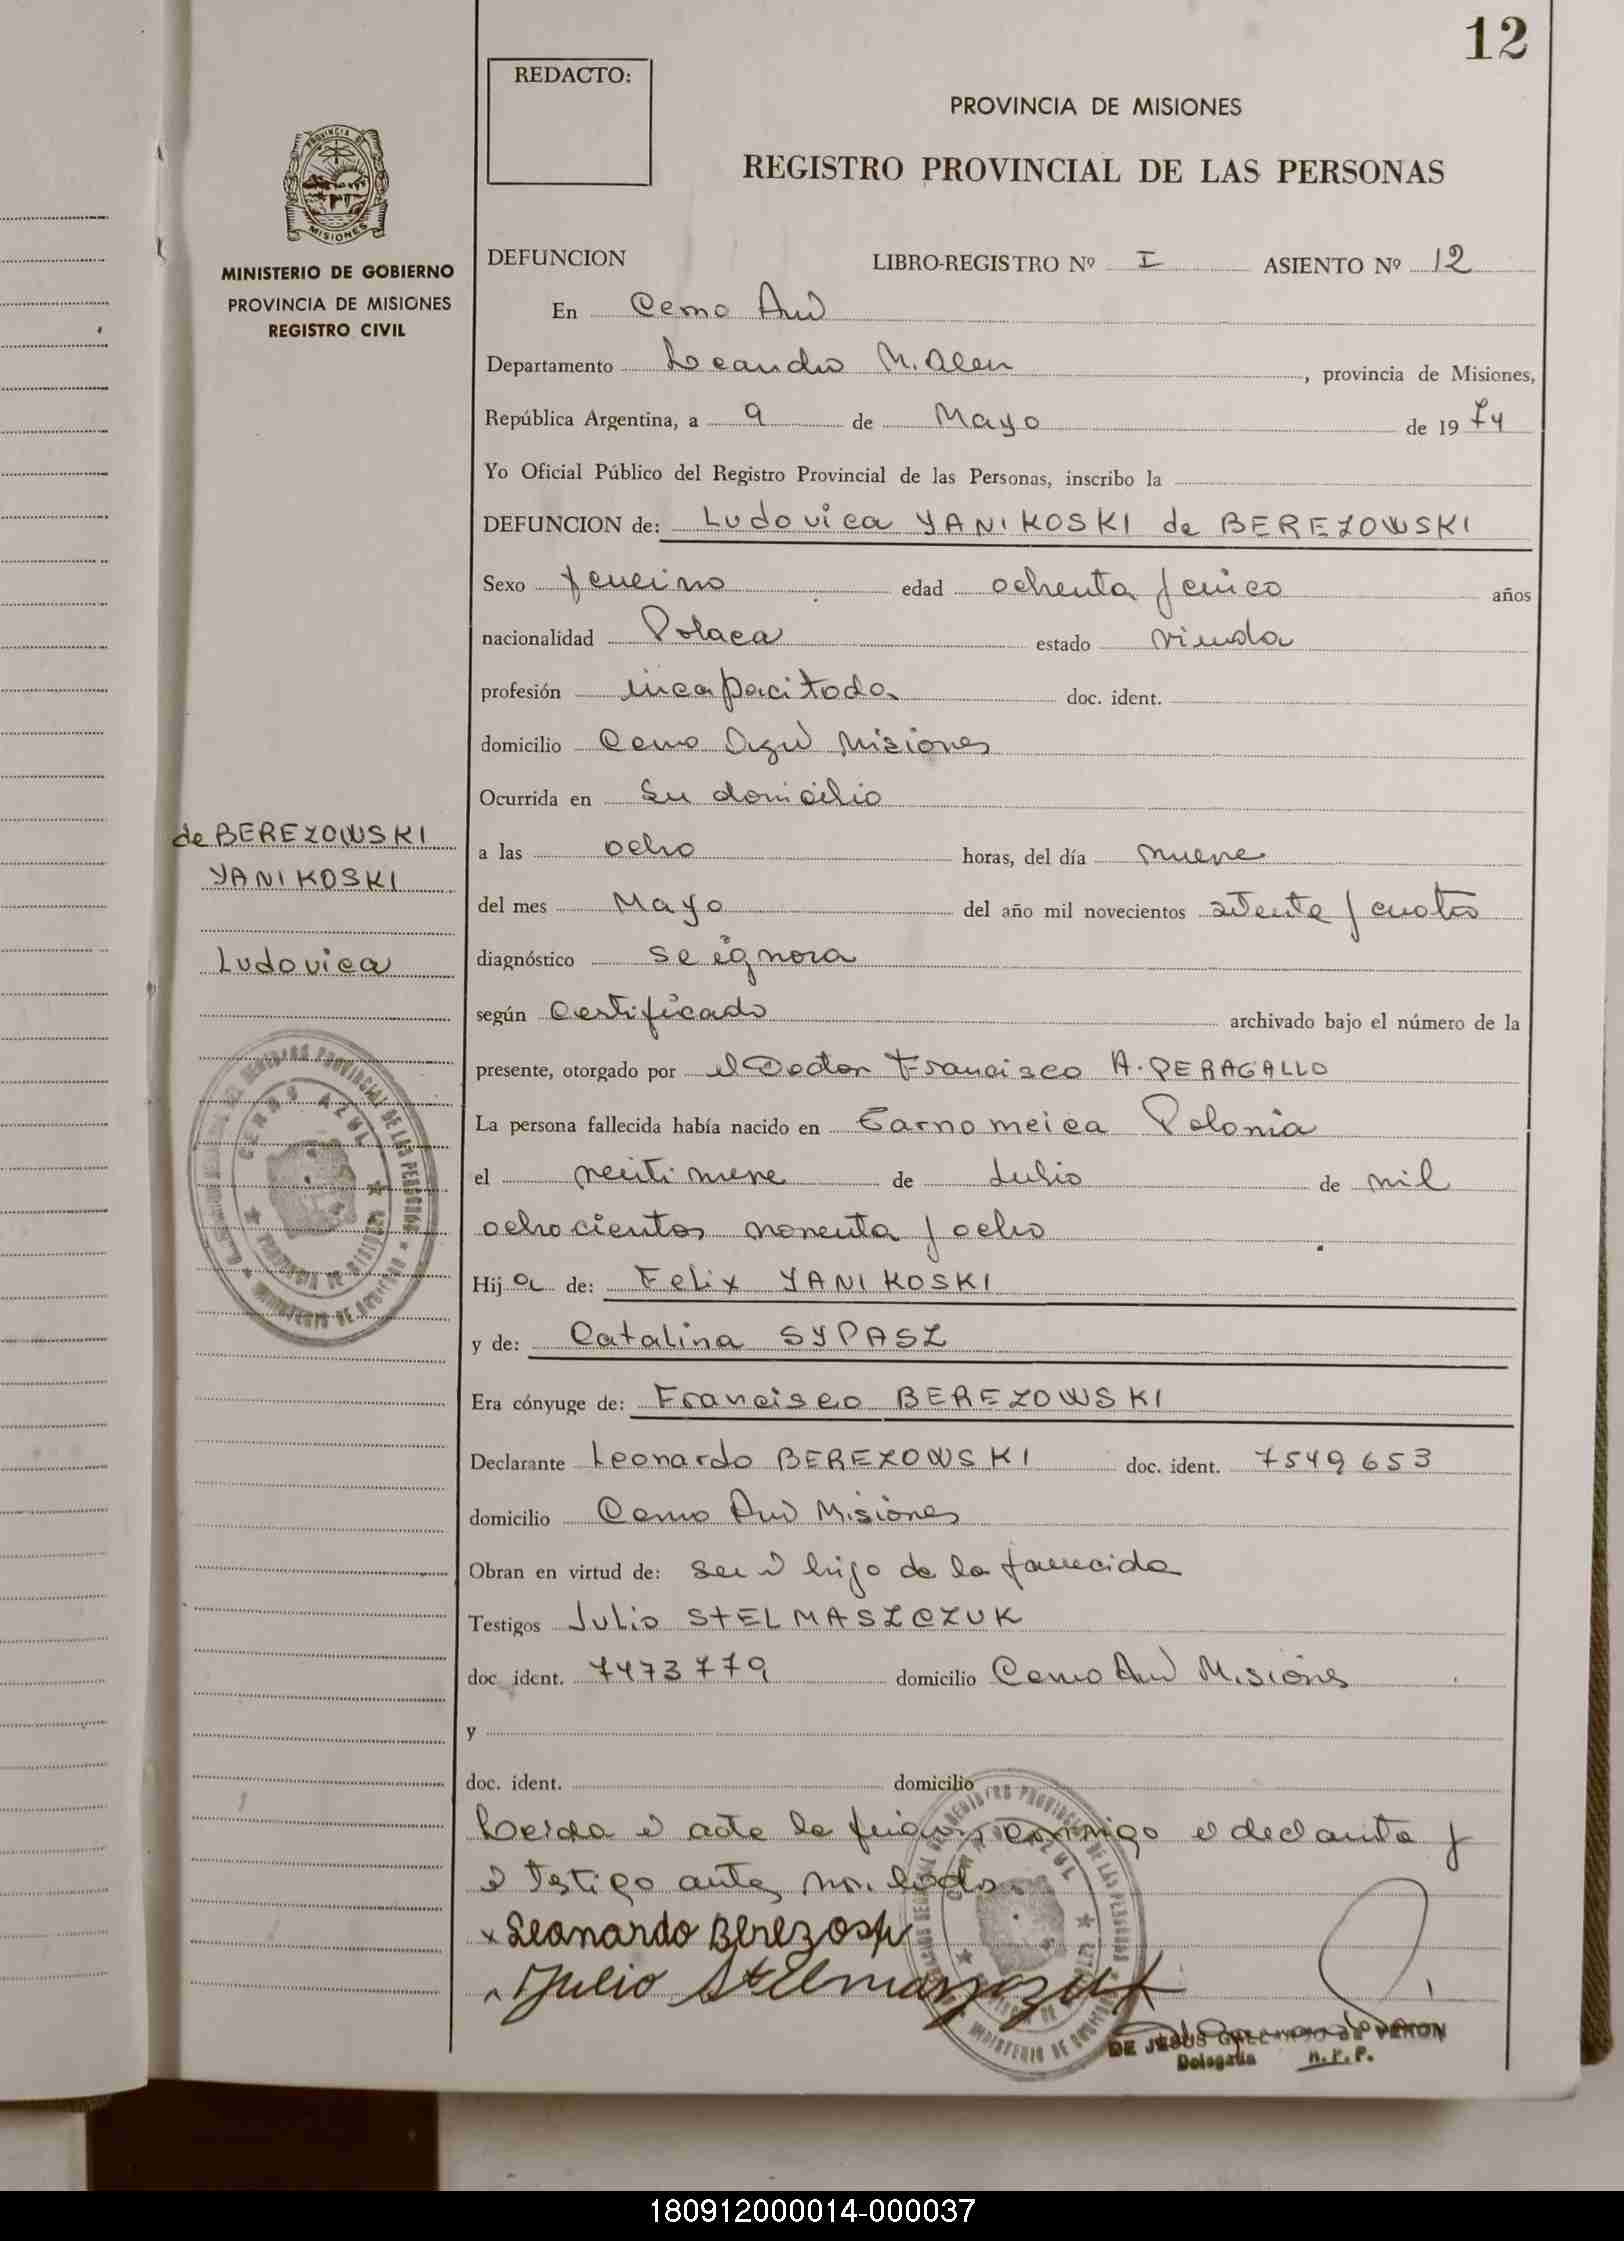 12
REDACTO:
PROVINCIA DE MISIONES
REGISTRO PROVINCIAL DE LAS PERSONAS
MINISTERIO DE GOBIERNO
PROVINCIA DE MISIONES
REGISTRO CIVIL
DEFUNCION LIBRO-REGISTRO Nº I ASIENTO Nº 12
En Cerro Azul
Departamento Leandro N. Alem, provincia de Misiones,
República Argentina, a 9 de Mayo de 1974
Yo Oficial Público del Registro Provincial de las Personas, inscribo la
DEFUNCION de: Ludovica YANIKOSKI de BEREZOWSKI
Sexo femenino edad ochenta y cinco años
nacionalidad Polaca estado viuda
profesión incapacitada doc. ident.
domicilio Cerro Azul Misiones
Ocurrida en su domicilio
a las ocho horas, del día nueve
del mes Mayo del año mil novecientos setenta y cuatro
diagnóstico se ignora
según Certificado archivado bajo el número de la
presente, otorgado por el Doctor Francisco A. PERAGALLO
La persona fallecida había nacido en Tarnomeica Polonia
el veintinueve de Julio de mil
ochocientos noventa y ocho
Hija de: Felix YANIKOSKI
y de: Catalina SYPASZ
Era cónyuge de: Francisco BEREZOWSKI
Declarante Leonardo BEREZOWSKI doc. ident. 7549653
domicilio Cerro Azul Misiones
Obran en virtud de: ser el hijo de la fallecida
Testigos Julio STELMASZCZUK
doc. ident. 7473779 domicilio Cerro Azul Misiones
y
doc. ident. domicilio
Leida el acta la firman conmigo el declarante y
el testigo antes nombrado.
x Leonardo Berezoski
Julio Stelmaszczuk
DE JESUS DE PERON
Delegada R.P.P.
de BEREZOWSKI
YANIKOSKI
Ludovica
REGISTRO PROVINCIAL DE LAS PERSONAS
CERRO AZUL
PROVINCIA DE MISIONES
MINISTERIO DE GOBIERNO
180912000014-000037